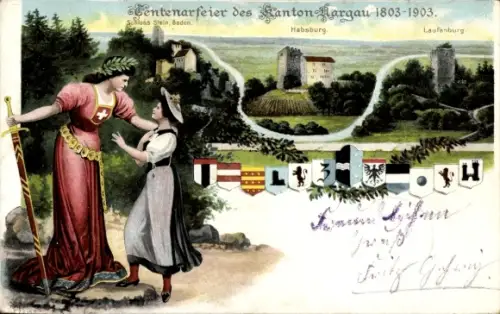 Centenarfeier des Kanton Aargau 1803-1903.
Schloss Stein, Baden.
Habsburg.
Laufenburg
L 3 H
Gruß
Fritz